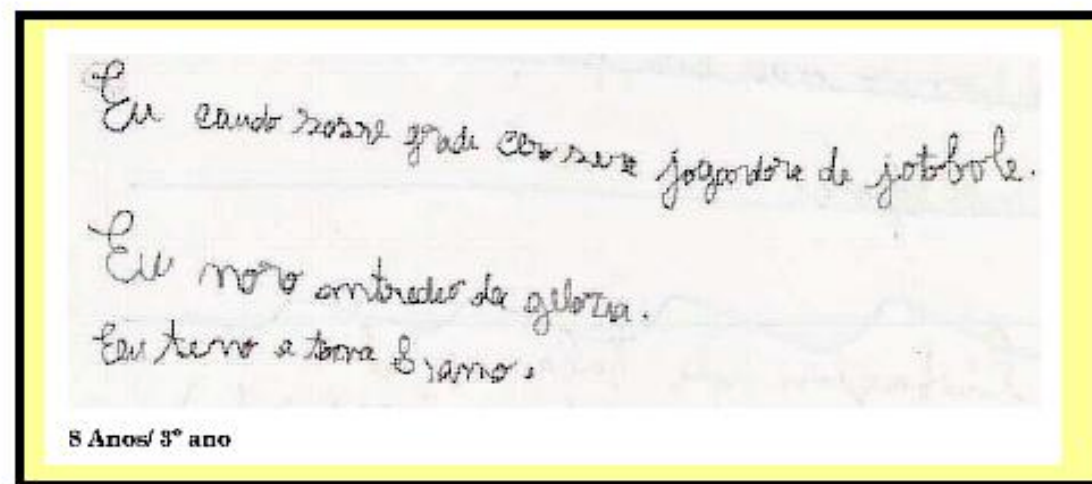 Eu caudo sosre grade cero sere jogardore de jotobole.
Eu moro omtredes da geloria.
Eu temo e tora 8 jamo.
8 Anos/ 3º ano